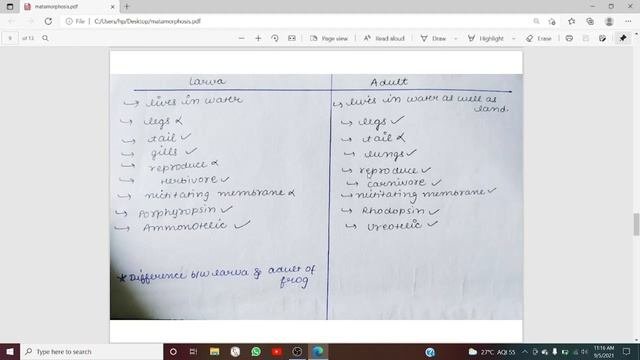 matamorphosis.pdf
File
C:/Users/hp/Desktop/matamorphosis.pdf
9
of 13
Page view
Read aloud
Draw
Highlight
Erase
Larva
→ lives in water
→ legs ×
→ tail ✓
→ gills ✓
→ reproduce ×
→ Herbivore ✓
→ nictitating membrane ×
→ Porphyropsin ✓
→ Ammonotelic ✓
* Difference b/w larva & adult of
frog
Adult
→ lives in water as well as
land.
→ legs ✓
→ tail ×
→ lungs ✓
→ reproduce ✓
→ carnivore ✓
→ nictitating membrane ✓
→ Rhodopsin ✓
→ ureotelic ✓
Type here to search
27°C AQI 55
11:16 AM
9/5/2021